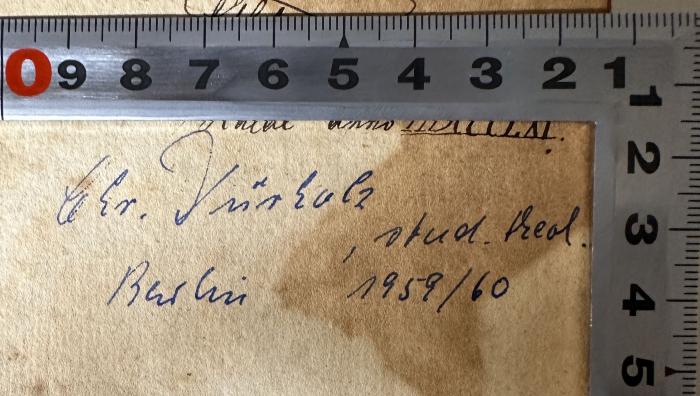 0 9 8 7 6 5 4 3 2 1
1
2
3
4
5
anno
Chr. Dürholz
, stud. theol.
Berlin 1959/60